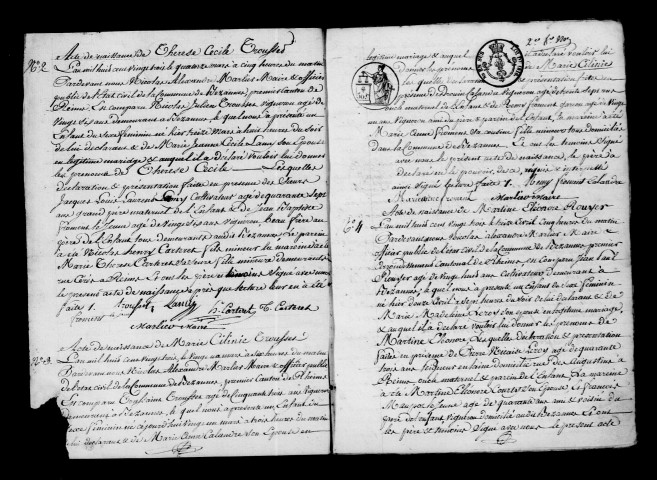 N.° 2
Acte de naissance de Therese Cecile Trousset
L'an mil huit cent vingt trois le quatorze mars à cinq heures du matin
Pardevant nous Nicolas Alexandre Marlier Maire & officier
public de l'Etat civil de la Commune de Bezannes, premier canton de
Reims. Est comparu Nicolas Julien Trousset vigneron âgé de
vingt six ans demeurant à Bezannes, le quel nous a présenté un
Enfant du Sexe féminin né hier treize Mars à huit heures du soir
de lui déclarant & de Marie Jeanne Cécile Lanis Son Epouse
en légitime mariage & auquel il a déclaré vouloir lui donner
les prenoms de Therese Cecile Lesquelles
déclaration & présentation faite en presence des Sieurs
Jacques Louis Laurent Cultivateur âgé de quarante Sept
ans grand père maternel de l'Enfant & de Jean Baptiste
Froment le Jeune agé de vingt six ans vigneron beau frère au
père de l'Enfant tous demeurants audit Bezannes. le parrain
a été Nicolas Henry Carteret fils mineur la marraine a été
Marie Therese Carteret Sa Sœur fille mineure demeurants
tous deux à Reims & ont les père & témoins Signé avec nous
le present acte de naissance après que lecture leur en a été
faite
trousset Lanis h. Carteret t. Carteret
froment
Marlier maire
N.° 3
Acte de naissance de Marie Cilinie Trousset
L'an mil huit cent vingt trois, le vingt un mars à six heures du matin
Pardevant nous Nicolas Alexandre Marlier Maire & officier public
de l'état civil de la Commune de Bezannes, premier Canton de Reims
Est comparu Ghislaine Trousset âgé de Cinquante trois ans vigneron
demeurant à Bezannes, le quel nous a présenté un Enfant du
Sexe féminin né aujourd'hui vingt un mars à trois heures du matin
de lui déclarant & de Marie Anne Calandre Son Epouse en
légitime mariage & auquel
a déclaré vouloir lui
donner les prenoms
Marie Cilinie
les quelles
présentation faite en
presence de Calandre Vigneron âgé de trente sept ans
oncle maternel de l'Enfant & de Remy Froment garçon agé de vingt
un ans Vigneron ami du père & parrain de l'Enfant. la marraine a été
Marie Anne Froment Sa cousine fille mineure tous domiciliés
dans la Commune de Bezannes. Et ont les témoins Signé
avec nous le présent acte de naissance, le père a
déclaré ne le pouvoir, de ce requis & interpellé
après lecture faite. Remy froment Calandre
froment Marlier maire
N.° 4
Acte de naissance de Martine Eléonore Plouzet
L'an mil huit cent vingt trois le treize Avril Cinq heures du matin
Pardevant nous Nicolas Alexandre Marlier Maire &
officier public de l'Etat civil de la Commune de Bezannes premier
arrondissement Cantonal de Reims, est comparu
Plouzet agé de vingt huit ans cultivateur demeurant à
Bezannes, le quel nous a présenté un enfant du sexe féminin
né hier douze Avril à Sept heures du soir de lui déclarant & de
Marie Madeleine Leroy Son Epouse en légitime mariage,
auquel il a déclaré vouloir lui donner les prenoms de
Martine Eléonore. Les quelles déclaration & présentation
faites en présence de Pierre Nicaise Leroy agé de quarante
trois ans Serrurier en laine domicilié rue des Augustins à
Reims oncle maternel & parrain de l'Enfant. la marraine
a été Martine Eléonore Son Epouse & François
le jeune agé de quarante ans & voisin du
père de l'enfant, vigneron domicilié audit Bezannes. & ont
les père & témoins Signé avec nous le present acte